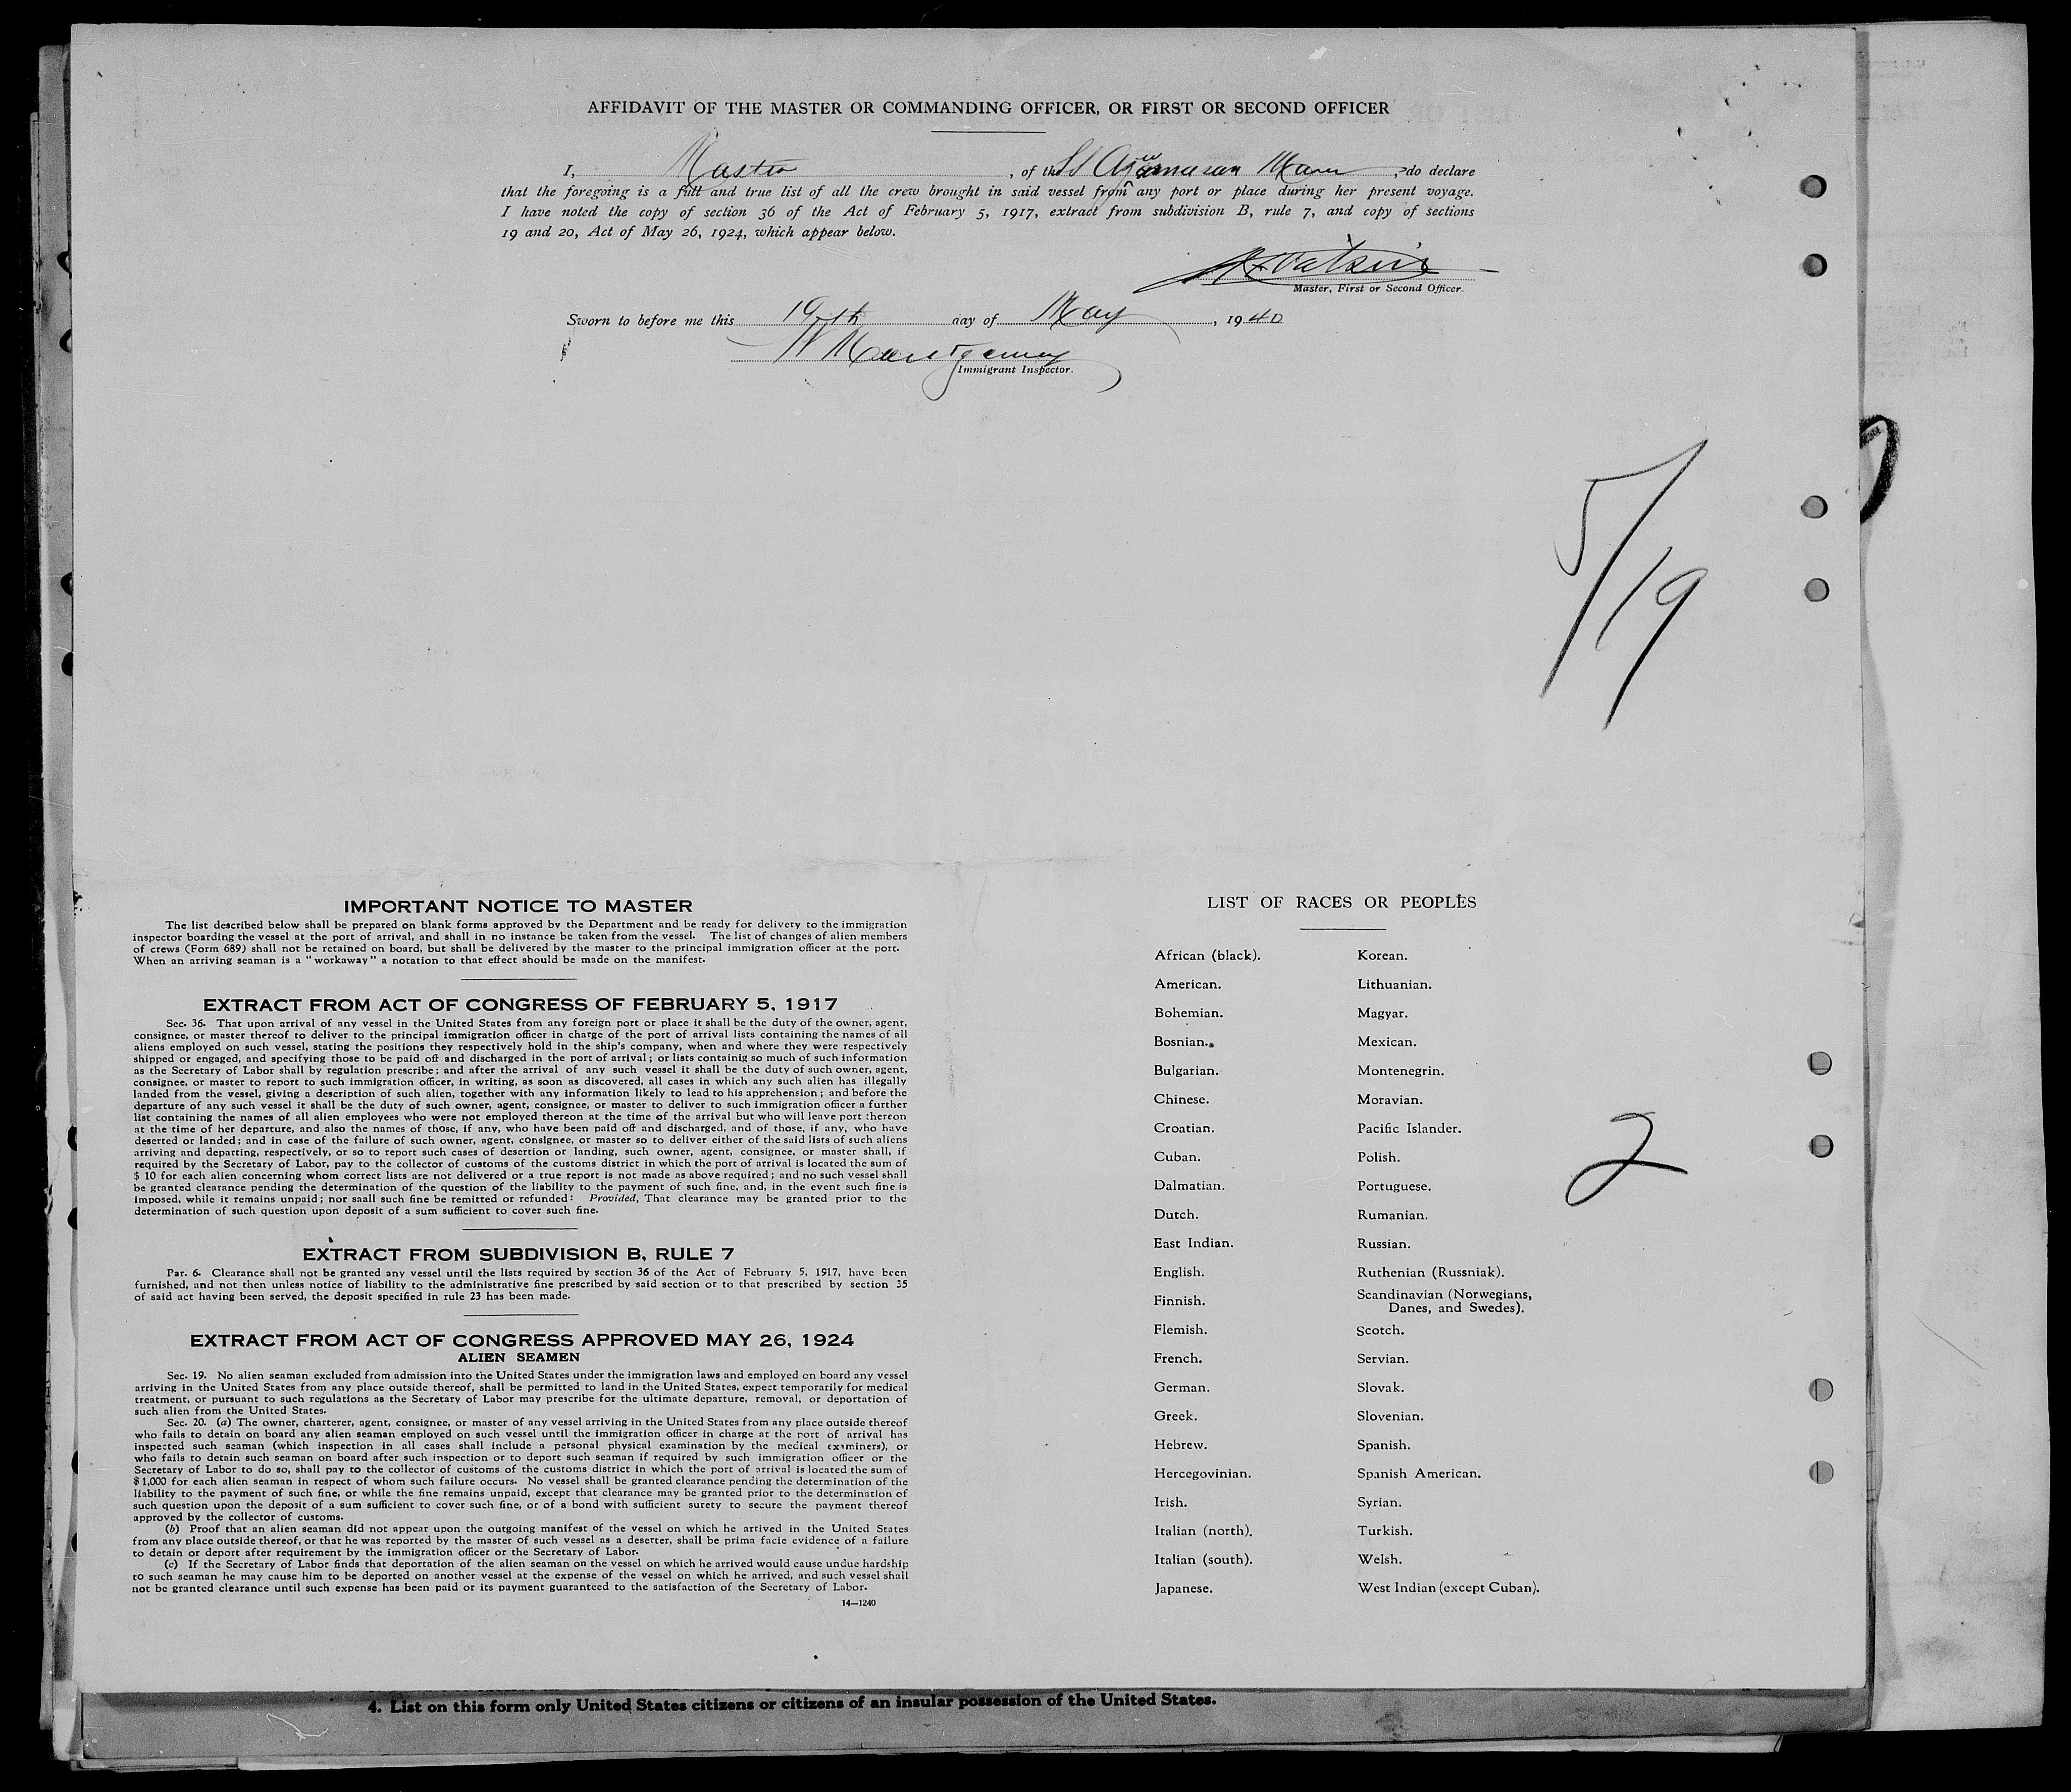 AFFIDAVIT OF THE MASTER OR COMMANDING OFFICER, OR FIRST OR SECOND OFFICER
I, Master, of the SS Maru, do declare
that the foregoing is a full and true list of all the crew brought in said vessel from any port or place during her present voyage.
I have noted the copy of section 36 of the Act of February 5, 1917, extract from subdivision B, rule 7, and copy of sections
19 and 20, Act of May 26, 1924, which appear below.
Master, First or Second Officer.
Sworn to before me this 19th day of May, 1940
W Montgomery
Immigrant Inspector.
5/19
IMPORTANT NOTICE TO MASTER
The list described below shall be prepared on blank forms approved by the Department and be ready for delivery to the immigration
inspector boarding the vessel at the port of arrival, and shall in no instance be taken from the vessel. The list of changes of alien members
of crews (Form 689) shall not be retained on board, but shall be delivered by the master to the principal immigration officer at the port.
When an arriving seaman is a "workaway" a notation to that effect should be made on the manifest.
EXTRACT FROM ACT OF CONGRESS OF FEBRUARY 5, 1917
Sec. 36. That upon arrival of any vessel in the United States from any foreign port or place it shall be the duty of the owner, agent,
consignee, or master thereof to deliver to the principal immigration officer in charge of the port of arrival lists containing the names of all
aliens employed on such vessel, stating the positions they respectively hold in the ship's company, when and where they were respectively
shipped or engaged, and specifying those to be paid off and discharged in the port of arrival; or lists containig so much of such information
as the Secretary of Labor shall by regulation prescribe; and after the arrival of any such vessel it shall be the duty of such owner, agent,
consignee, or master to report to such immigration officer, in writing, as soon as discovered, all cases in which any such alien has illegally
landed from the vessel, giving a description of such alien, together with any information likely to lead to his apprehension; and before the
departure of any such vessel it shall be the duty of such owner, agent, consignee, or master to deliver to such immigration officer a further
list containing the names of all alien employees who were not employed thereon at the time of the arrival but who will leave port thereon
at the time of her departure, and also the names of those, if any, who have been paid off and discharged, and of those, if any, who have
deserted or landed; and in case of the failure of such owner, agent, consignee, or master so to deliver either of the said lists of such aliens
arriving and departing, respectively, or so to report such cases of desertion or landing, such owner, agent, consignee, or master shall, if
required by the Secretary of Labor, pay to the collector of customs of the customs district in which the port of arrival is located the sum of
$ 10 for each alien concerning whom correct lists are not delivered or a true report is not made as above required; and no such vessel shall
be granted clearance pending the determination of the question of the liability to the payment of such fine, and, in the event such fine is
imposed, while it remains unpaid; nor saall such fine be remitted or refunded: Provided, That clearance may be granted prior to the
determination of such question upon deposit of a sum sufficient to cover such fine.
EXTRACT FROM SUBDIVISION B, RULE 7
Par. 6. Clearance shall not be granted any vessel until the lists required by section 36 of the Act of February 5, 1917, have been
furnished, and not then unless notice of liability to the administrative fine prescribed by said section or to that prescribed by section 35
of said act having been served, the deposit specified in rule 23 has been made.
EXTRACT FROM ACT OF CONGRESS APPROVED MAY 26, 1924
ALIEN SEAMEN
Sec. 19. No alien seaman excluded from admission into the United States under the immigration laws and employed on board any vessel
arriving in the United States from any place outside thereof, shall be permitted to land in the United States, expect temporarily for medical
treatment, or pursuant to such regulations as the Secretary of Labor may prescribe for the ultimate departure, removal, or deportation of
such alien from the United States.
Sec. 20. (a) The owner, charterer, agent, consignee, or master of any vessel arriving in the United States from any place outside thereof
who fails to detain on board any alien seaman employed on such vessel until the immigration officer in charge at the port of arrival has
inspected such seaman (which inspection in all cases shall include a personal physical examination by the medical examiners), or
who fails to detain such seaman on board after such inspection or to deport such seaman if required by such immigration officer or the
Secretary of Labor to do so, shall pay to the collector of customs of the customs district in which the port of arrival is located the sum of
$ 1,000 for each alien seaman in respect of whom such failure occurs. No vessel shall be granted clearance pending the determination of the
liability to the payment of such fine, or while the fine remains unpaid, except that clearance may be granted prior to the determination of
such question upon the deposit of a sum sufficient to cover such fine, or of a bond with sufficient surety to secure the payment thereof
approved by the collector of customs.
(b) Proof that an alien seaman did not appear upon the outgoing manifest of the vessel on which he arrived in the United States
from any place outside thereof, or that he was reported by the master of such vessel as a deserter, shall be prima facie evidence of a failure
to detain or deport after requirement by the immigration officer or the Secretary of Labor.
(c) If the Secretary of Labor finds that deportation of the alien seaman on the vessel on which he arrived would cause undue hardship
to such seaman he may cause him to be deported on another vessel at the expense of the vessel on which he arrived, and such vessel shall
not be granted clearance until such expense has been paid or its payment guaranteed to the satisfaction of the Secretary of Labor.
14—1240
LIST OF RACES OR PEOPLES
African (black). Korean.
American. Lithuanian.
Bohemian. Magyar.
Bosnian. Mexican.
Bulgarian. Montenegrin.
Chinese. Moravian.
Croatian. Pacific Islander.
Cuban. Polish.
Dalmatian. Portuguese.
Dutch. Rumanian.
East Indian. Russian.
English. Ruthenian (Russniak).
Finnish. Scandinavian (Norwegians,
Danes, and Swedes).
Flemish. Scotch.
French. Servian.
German. Slovak.
Greek. Slovenian.
Hebrew. Spanish.
Hercegovinian. Spanish American.
Irish. Syrian.
Italian (north). Turkish.
Italian (south). Welsh.
Japanese. West Indian (except Cuban).
2
4. List on this form only United States citizens or citizens of an insular possession of the United States.